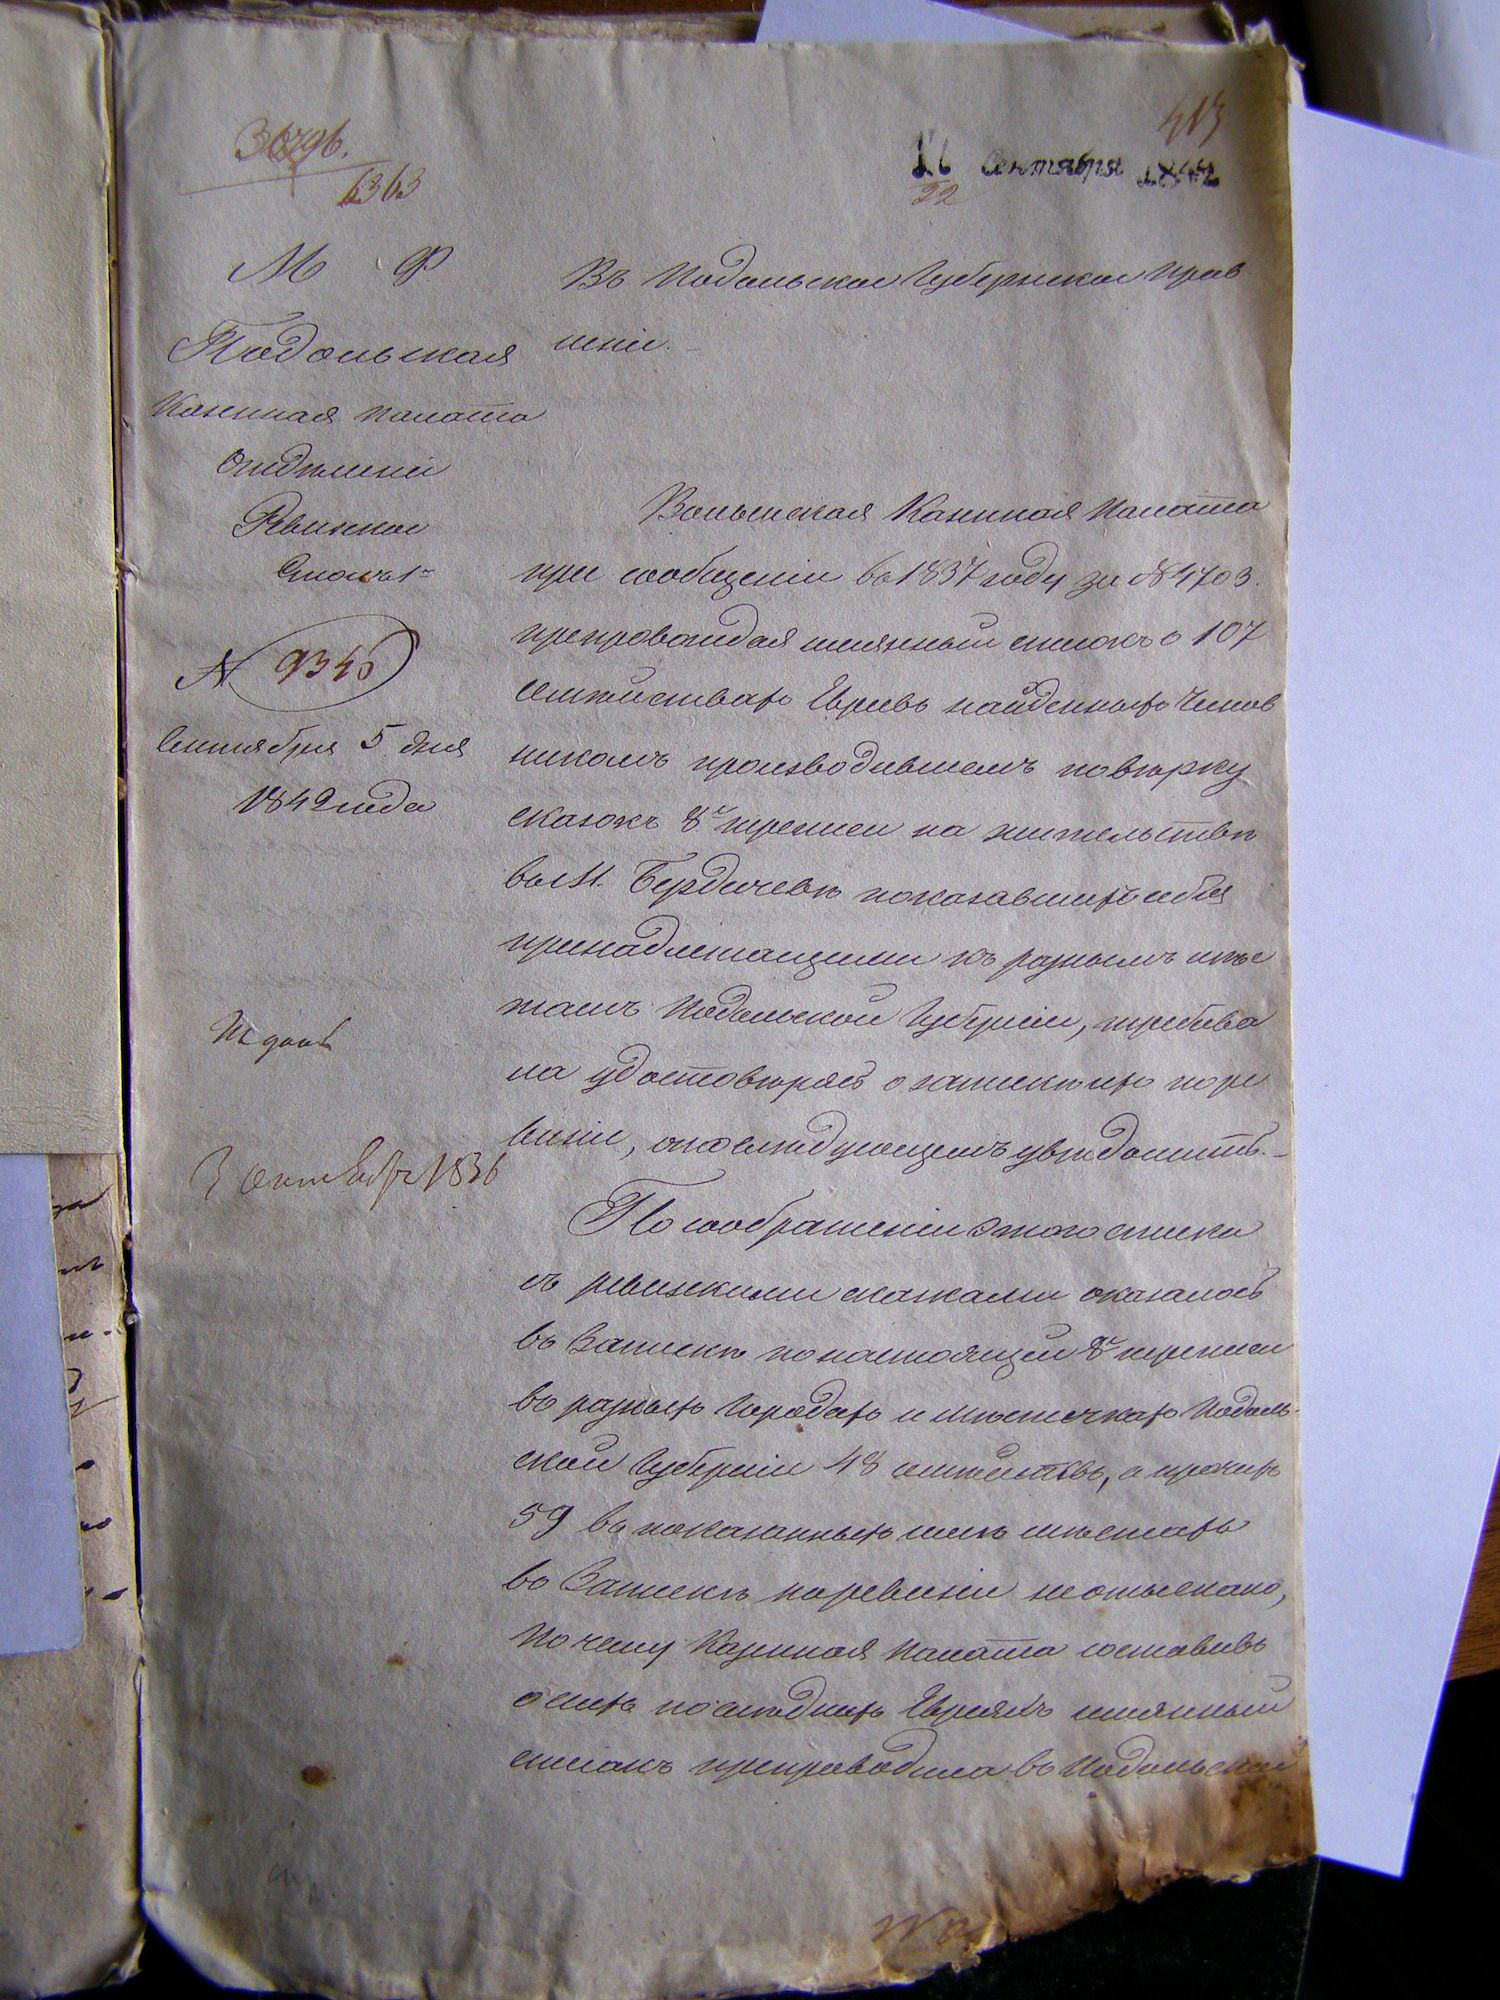 413
6363
16 Сентября 1842
22
М Ф
Подольская
Казенная палата
Отделение
Ревизское
Столъ 1й
№ 9345
Сентября 5 дня
1842 года
3 Октября 1836
Въ Подольское Губернское Прав
ление.
Волынская Казенная Палата
при сообщеніи въ 1837 году за № 4703.
препровождая имянный списокъ о 107
семействахъ Евреевъ найденныхъ Чинов
никомъ производившемъ поверку
сказокъ 8й переписи на жительстве
въ М. Бердичеве показавшихъ себя
принадлежащими къ разнымъ мѣс
тамъ Подольской Губерніи, требова
ла удостоверясь о записке ихъ по ре
визіи, о последующемъ уведомить.
По соображеніи этого списка
съ ревизкими сказками оказалось
въ Записке по настоящей 8й переписи
въ разныхъ Городахъ и местечкахъ Подоль-
ской Губерніи 48 семействъ, а прочихъ
59 въ показанныхъ ими местахъ
въ Записке по ревизіи не отыскано,
Почему Казенная Палата составивъ
о сихъ последнихъ Евреяхъ имянный
списокъ препроводила въ Подольское